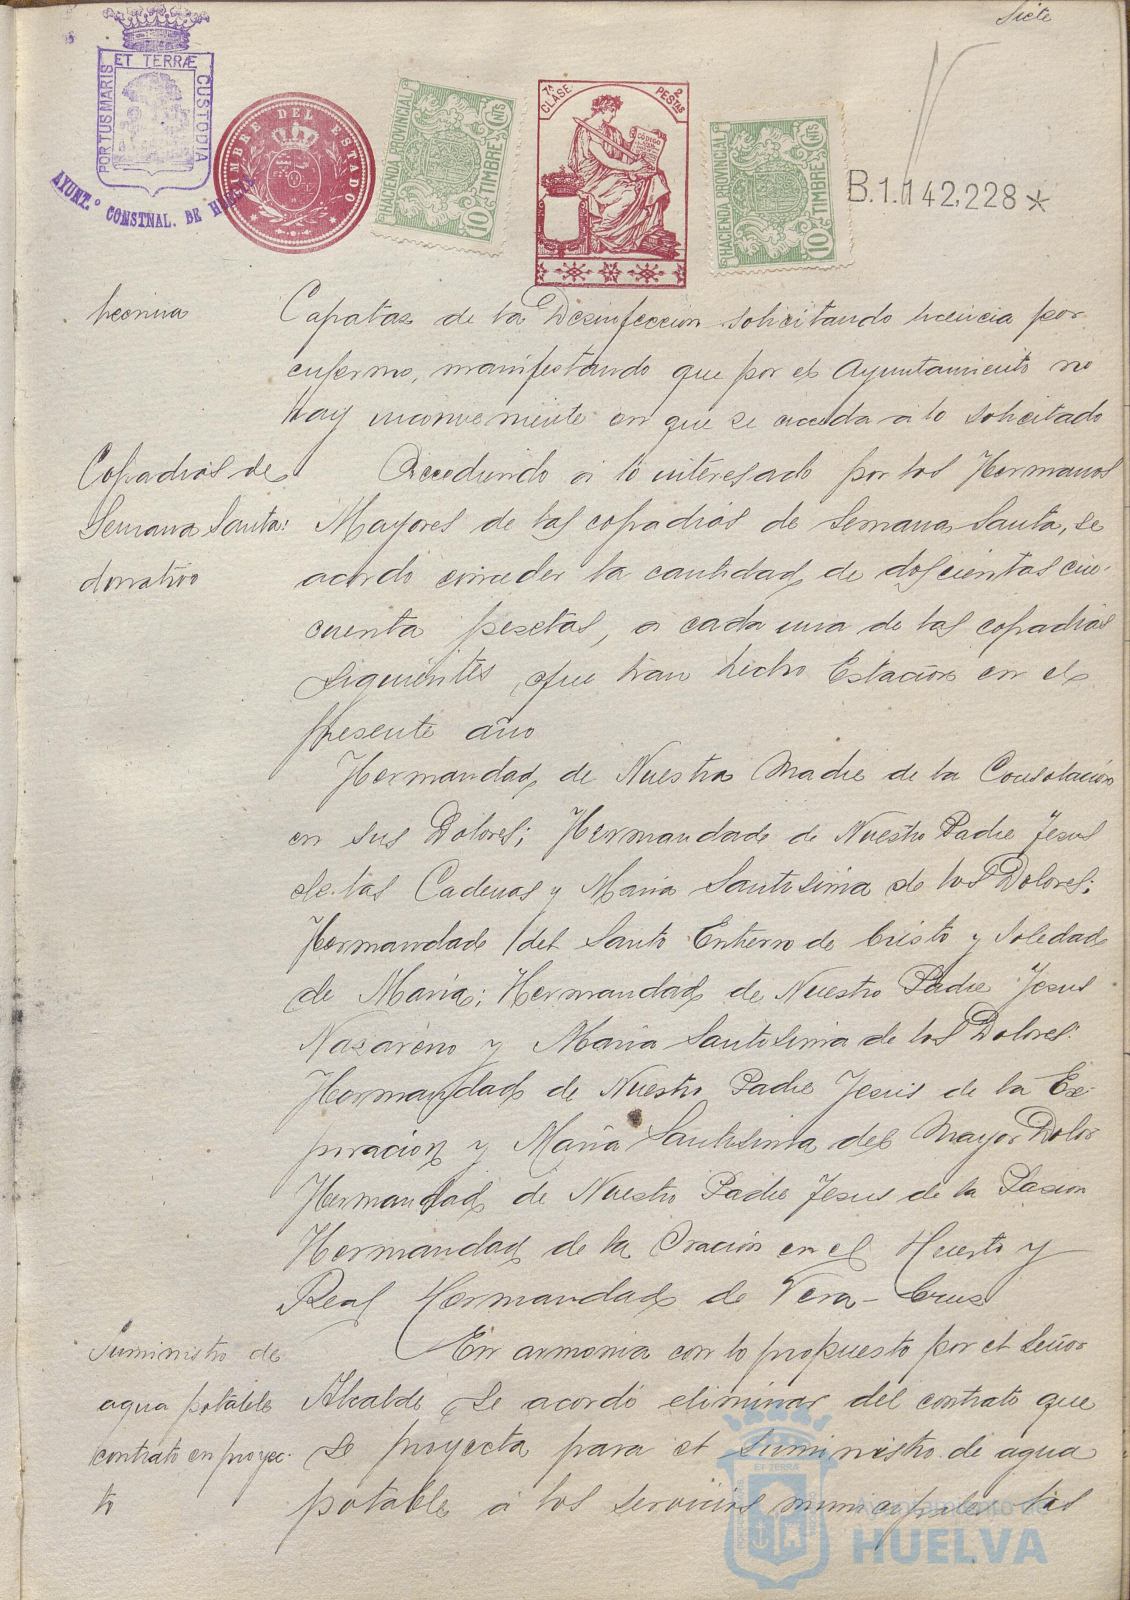 Siete
PORTUS MARIS ET TERRÆ CUSTODIA
AYUNT.º CONSTNAL. DE HUELVA
TIMBRE DEL ESTADO
HACIENDA PROVINCIAL
10 CNTS
TIMBRE
7ª CLASE
2 PESTAS
CÓDIGO
HACIENDA PROVINCIAL
10 CNTS
TIMBRE
B.1.142,228*
licencia
Capataz de la Desinfección solicitando licencia por
enfermo, manifestando que por el Ayuntamiento no
hay inconveniente en que se acceda a lo solicitado
Cofradías de
Semana Santa:
donativo
Accediendo a lo interesado por los Hermanos
Mayores de las cofradías de Semana Santa, se
acordó conceder la cantidad de doscientas cin-
cuenta pesetas, a cada una de las cofradías
siguientes, que han hecho Estación en el
presente año
Hermandad de Nuestra Madre de la Consolación
en sus Dolores; Hermandad de Nuestro Padre Jesus
de las Cadenas y María Santísima de los Dolores;
Hermandad del Santo Entierro de Cristo y Soledad
de María; Hermandad de Nuestro Padre Jesus
Nazareno y María Santísima de los Dolores:
Hermandad de Nuestro Padre Jesús de la Ex-
piración y María Santísima del Mayor Dolor
Hermandad de Nuestro Padre Jesus de la Pasion
Hermandad de la Oración en el Huerto y
Real Hermandad de Vera-Cruz
Suministro de
agua potable
contrato en proyec-
to
En armonia con lo propuesto por el Señor
Alcalde se acordó eliminar del contrato que
se proyecta para el suministro de agua
potable a los servicios municipales las
Ayuntamiento de
HUELVA